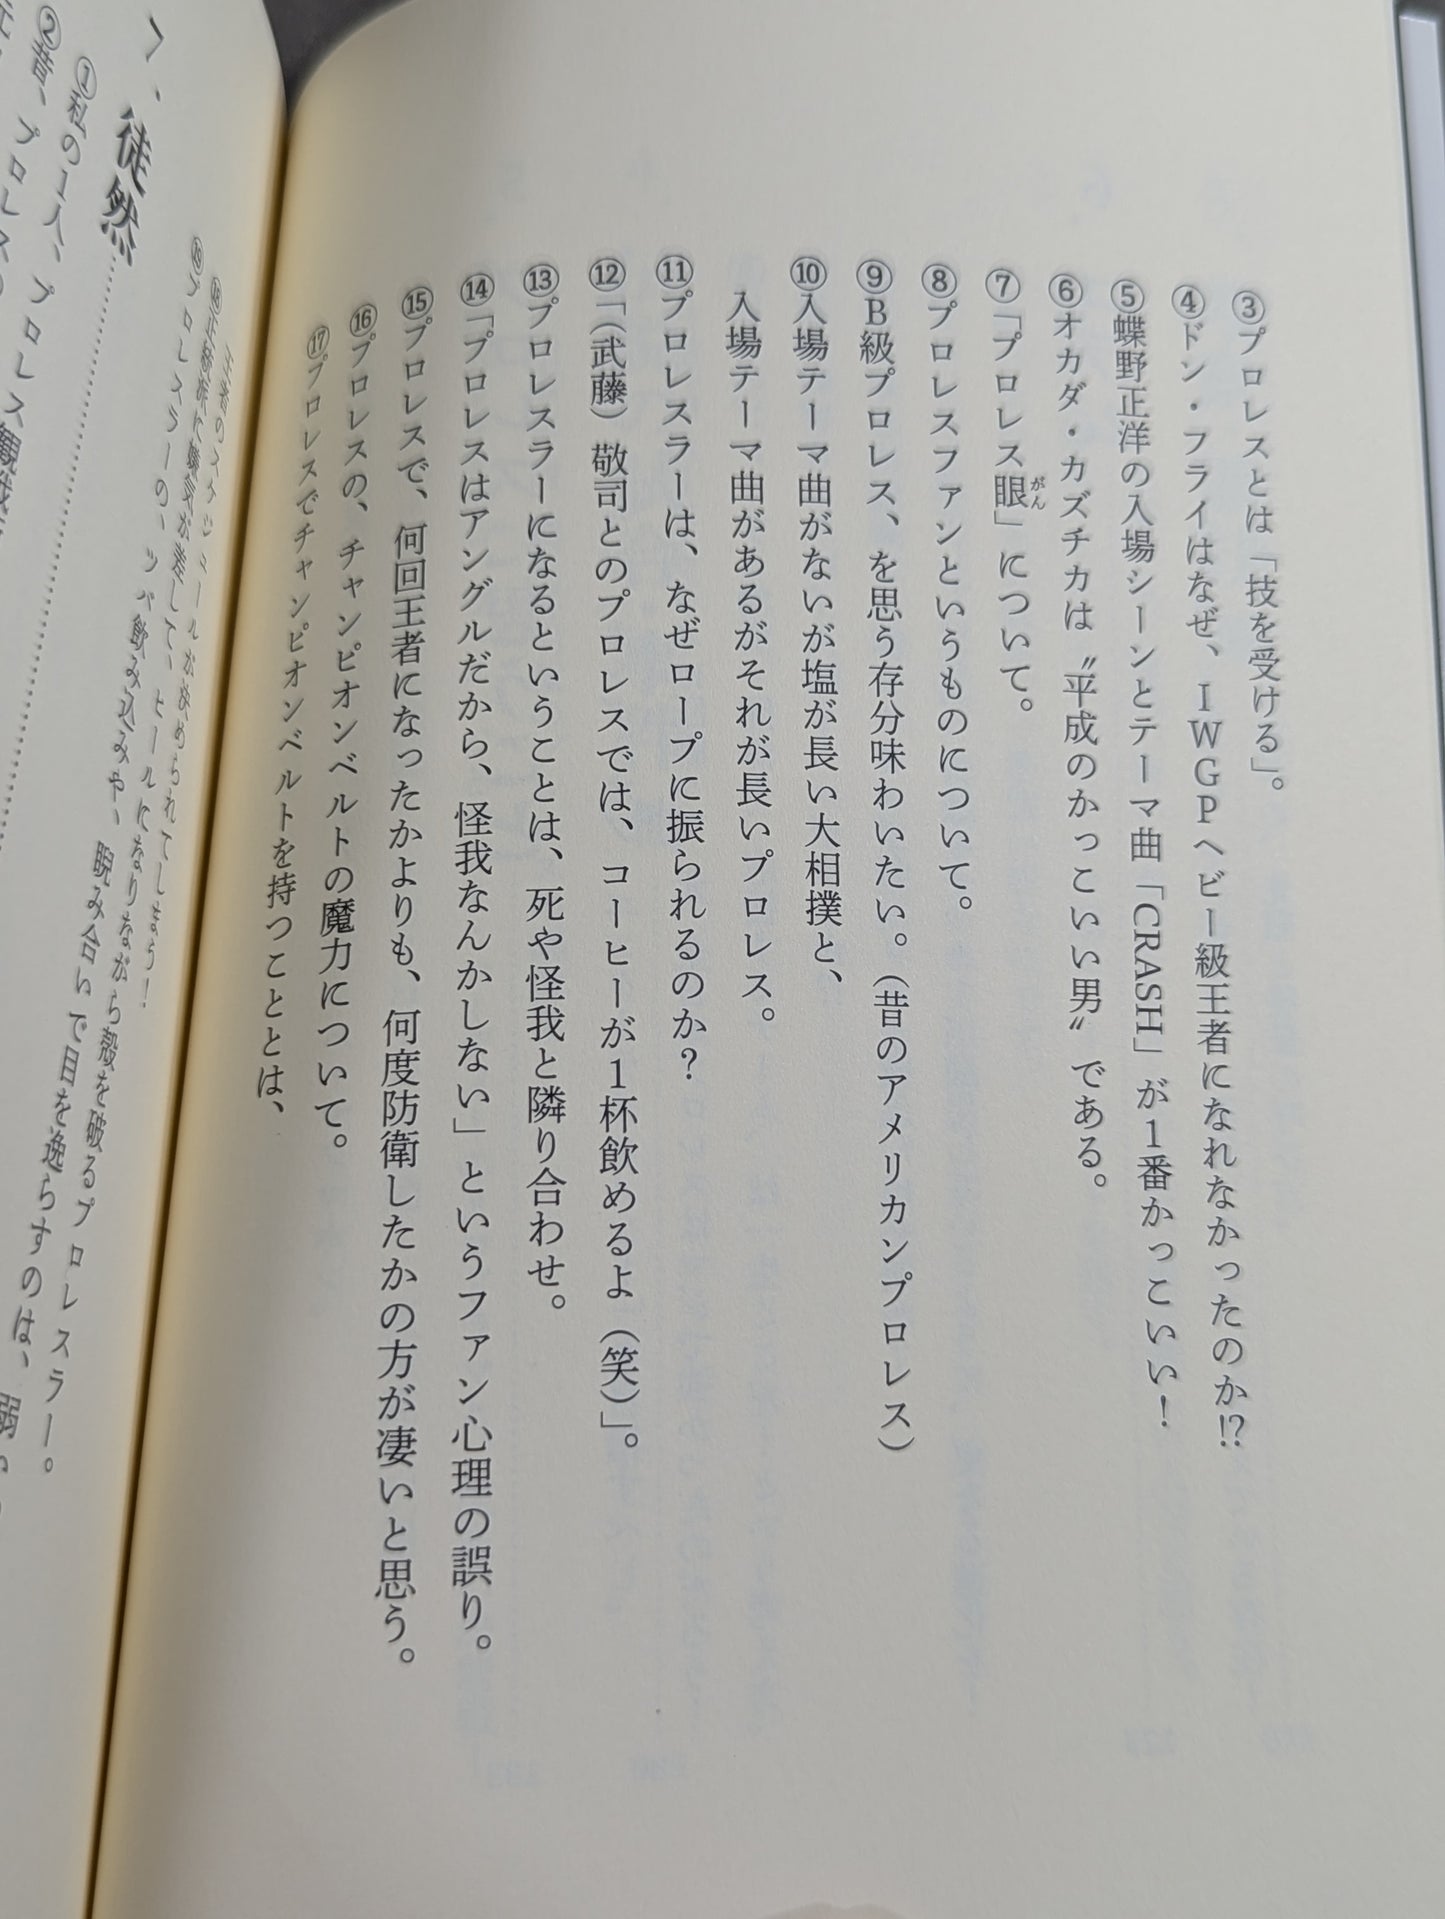 ③プロレスとは「技を受ける」。
④ドン・フライはなぜ、IWGPヘビー級王者になれなかったのか⁉
⑤蝶野正洋の入場シーンとテーマ曲「CRASH」が1番かっこいい！
⑥オカダ・カズチカは〝平成のかっこいい男〟である。
⑦「プロレス眼」について。
がん
⑧プロレスファンというものについて。
⑨B級プロレス、を思う存分味わいたい。（昔のアメリカンプロレス）
⑩入場テーマ曲がないが塩が長い大相撲と、
入場テーマ曲があるがそれが長いプロレス。
⑪プロレスラーは、なぜロープに振られるのか？
⑫「（武藤）敬司とのプロレスでは、コーヒーが1杯飲めるよ（笑）」。
⑬プロレスラーになるということは、死や怪我と隣り合わせ。
⑭「プロレスはアングルだから、怪我なんかしない」というファン心理の誤り。
⑮プロレスで、何回王者になったかよりも、何度防衛したかの方が凄いと思う。
⑯プロレスの、チャンピオンベルトの魔力について。
⑰プロレスでチャンピオンベルトを持つこととは、
王者のスケジュールが決められてしまう！
⑱正統派に嫌気が差して、ヒールになりながら殻を破るプロレスラー。
⑲プロレスラーの、ツバ飲み込みや、睨み合いで目を逸らすのは、
徒然
①私の1人、プロレス観戦
②昔、プロレスの